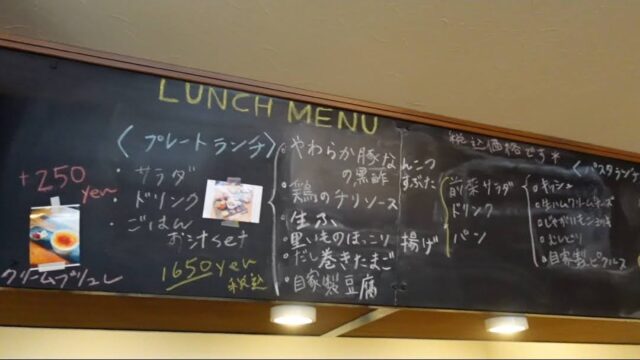 LUNCH MENU
税込価格です*
〈プレートランチ〉
・サラダ
・ドリンク
・ごはん
お汁set
1650yen
税込
+250
yen
クリームブリュレ
・やわらか豚なんこつ
の黒酢すぶた
・鶏のチリソース
・生ふ
・里いものほっこり揚げ
・だし巻きたまご
・自家製豆腐
〈パスタランチ
前菜サラダ
ドリンク
パン
・キッシュ
・生ハムクリームチーズ
・自家製ピクルス